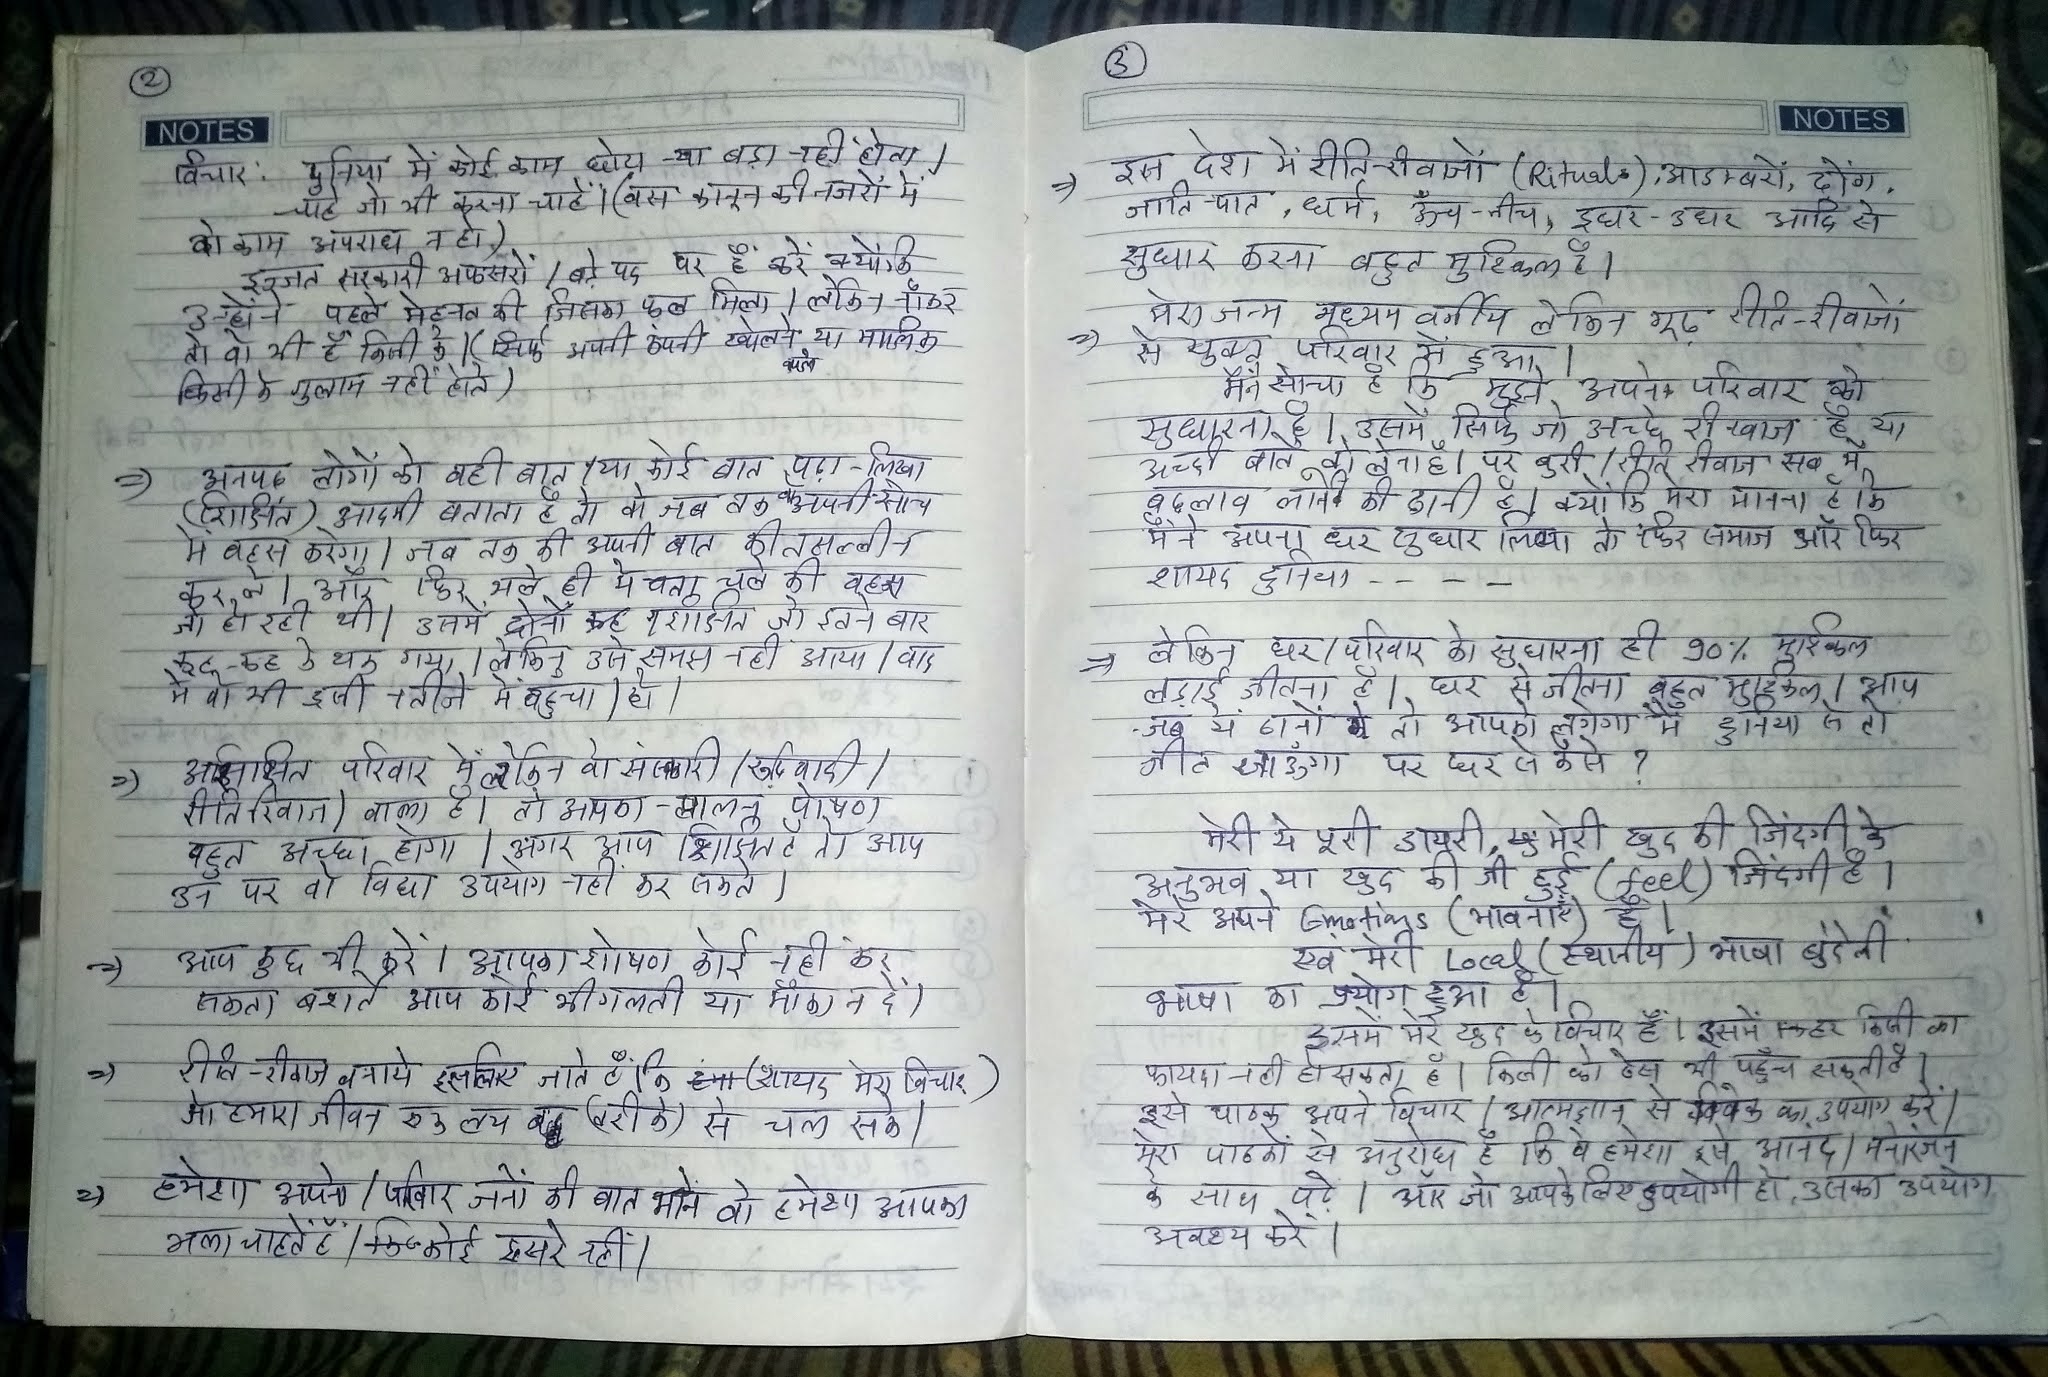 2
NOTES
विचार: दुनिया में कोई काम छोटा या बड़ा नहीं होता।
चाहे जो भी करना चाहें। (बस कानून की नजरों में
वो काम अपराध न हो।)
इज्जत सरकारी अफसरों / बड़े पद पर हैं करें क्योंकि
उन्होंने पहले मेहनत की जिसका फल मिला। लेकिन नौकर
तो वो भी हैं किसी के। (सिर्फ अपनी कंपनी खोलने या मालिक
वाले
किसी के गुलाम नहीं होते)
⇒ अनपढ़ लोगों को वही बात / या कोई बात पढ़ा-लिखा
(शिक्षित) आदमी बताता है तो वो जब तक अपनी सोच
में बहस करेगा। जब तक की अपनी बात की तसल्ली न
कर ले। और फिर भले ही में चले की बहस
जो हो रही थी। उसमें दोनों शिक्षित जो इतने बार
कह-कह के थक गया। लेकिन उसे समझ नहीं आया। बाद
में वो भी इसी नतीजे में पहुचा।
⇒ अशिक्षित परिवार में लेकिन वो संस्कारी / रूढ़िवादी /
रीतिरिवाज) वाला है। तो आपका पालन पोषण
बहुत अच्छा होगा। अगर आप शिक्षित हैं तो आप
उन पर वो विद्या उपयोग नहीं कर सकते।
⇒ आप कुछ भी करें। आपका शोषण कोई नहीं कर
सकता बशर्ते आप कोई भी गलती या मौका न दें।
⇒ रीति-रीवाज बनाये इसलिए जाते हैं कि (शायद मेरा विचार)
जो हमारा जीवन एक लय (तरीके) से चल सके।
⇒ हमेशा अपनो / परिवार जनों की बात मानें वो हमेशा आपका
भला चाहते हैं / कोई दूसरे नहीं।
3
NOTES
⇒ इस देश में रीति-रीवाजों (Rituals), आडम्बरों, ढोंग,
जाति-पात, धर्म, ऊँच-नीच, इधर-उधर आदि से
सुधार करना बहुत मुश्किल है।
⇒ मेरा जन्म मध्यम वर्गीय लेकिन गूढ़ रीति-रीवाजों
से युक्त परिवार में हुआ।
मैंने सोचा है कि मुझे अपने परिवार को
सुधारना है। उसमें सिर्फ जो अच्छे रीवाज हैं या
अच्छी बातें वो लेना है। पर बुरी / रीति रीवाज सब में
बदलाव लाने की ठानी है। क्योंकि मेरा मानना है कि
मैंने अपना घर सुधार लिया तो फिर समाज और फिर
शायद दुनिया - - - -
⇒ लेकिन घर / परिवार को सुधारना ही 90% मुश्किल
लड़ाई जीतना है। घर से जीतना बहुत मुश्किल। आप
जब ये ठानों तो आपको लगेगा मैं दुनिया से तो
जीत जाऊँगा पर घर से कैसे?
मेरी ये पूरी डायरी, मेरी खुद की जिंदगी के
अनुभव या खुद की जी हुई (feel) जिंदगी है।
मेरे अपने Emotions (भावनाएँ) हैं।
एवं मेरी Local (स्थानीय) भाषा बुंदेली
भाषा का प्रयोग हुआ है।
इसमें मेरे खुद के विचार हैं। इसमें किसी का
फायदा नहीं हो सकता है। किसी को ठेस भी पहुँच सकती है।
इसे पाठक अपने विचार / आत्मज्ञान से विवेक का उपयोग करें।
मेरा पाठकों से अनुरोध है कि वे हमेशा इसे आनंद / मनोरंजन
के साथ पढ़ें। और जो आपके लिए उपयोगी हो, उसका उपयोग
अवश्य करें।